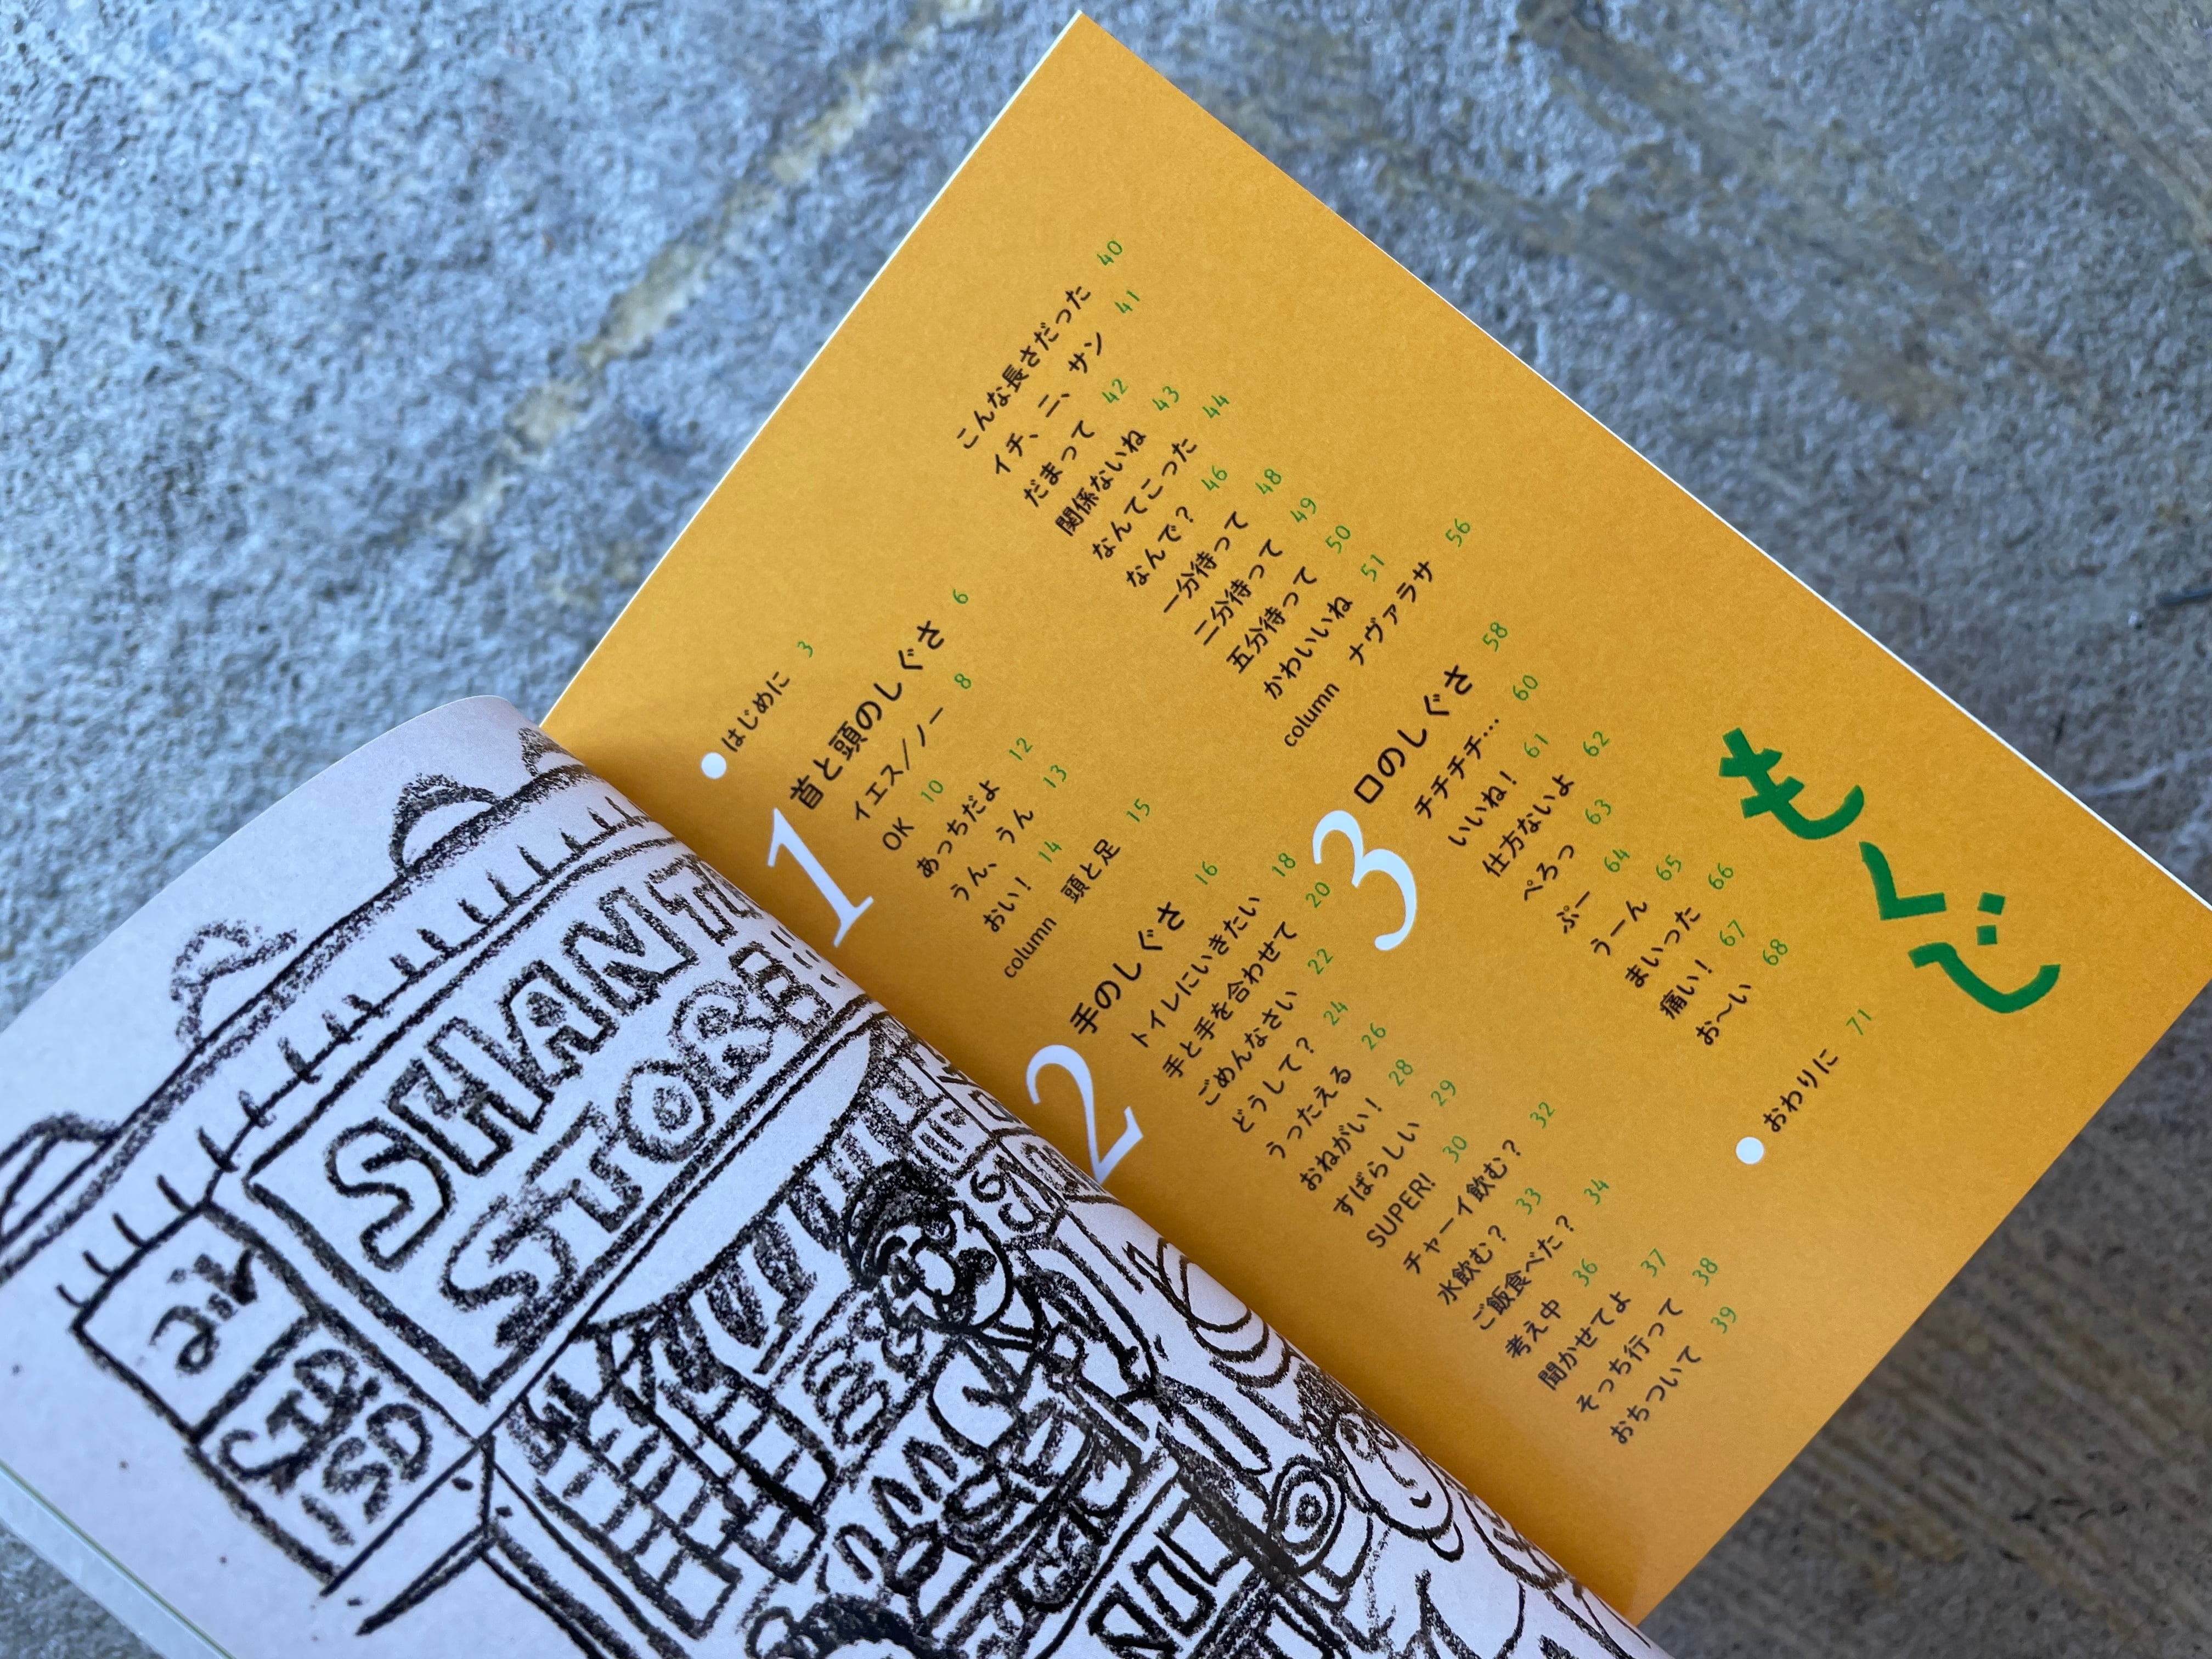 もくじ
はじめに 3
1 首と頭のしぐさ 6
イエス/ノー 8
OK 10
あっちだよ 12
うん、うん 13
おい! 14
column 頭と足 15
2 手のしぐさ 16
トイレにいきたい 18
手と手を合わせて 20
ごめんなさい 22
どうして? 24
うったえる 26
おねがい! 28
すばらしい 29
SUPER! 30
チャーイ飲む? 32
水飲む? 33
ご飯食べた? 34
考え中 36
聞かせてよ 37
そっち行って 38
おちついて 39
こんな長さだった 40
イチ、ニ、サン 41
だまって 42
関係ないね 43
なんてこった 44
なんで? 46
一分待って 48
二分待って 49
五分待って 50
かわいいね 51
column ナヴァラサ 56
3 口のしぐさ 58
チチチチ… 60
いいね! 61
仕方ないよ 62
ぺろっ 63
ぷー 64
うーん 65
まいった 66
痛い! 67
お〜い 68
おわりに 71
STD
ISD